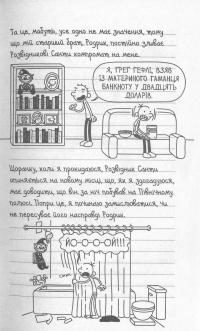 Та це, мабуть, усе одно не має значення, тому
що мій старший брат, Родрік, постійно зливає
Розвідникові Санти компромат на мене.
Я, ГРЕГ ГЕФЛІ, ВЗЯВ
ІЗ МАТЕРИНОГО ГАМАНЦЯ
БАНКНОТУ У ДВАДЦЯТЬ
ДОЛАРІВ.
Щоранку, коли я прокидаюся, Розвідник Санти
опиняється на новому місці, що, як я здогадуюся,
має доводити, що він за ніч побував на Північному
полюсі. Попри це, я починаю замислюватися, чи
не пересуває його насправді Родрік.
ЙО-О-О-ОЙ!!!